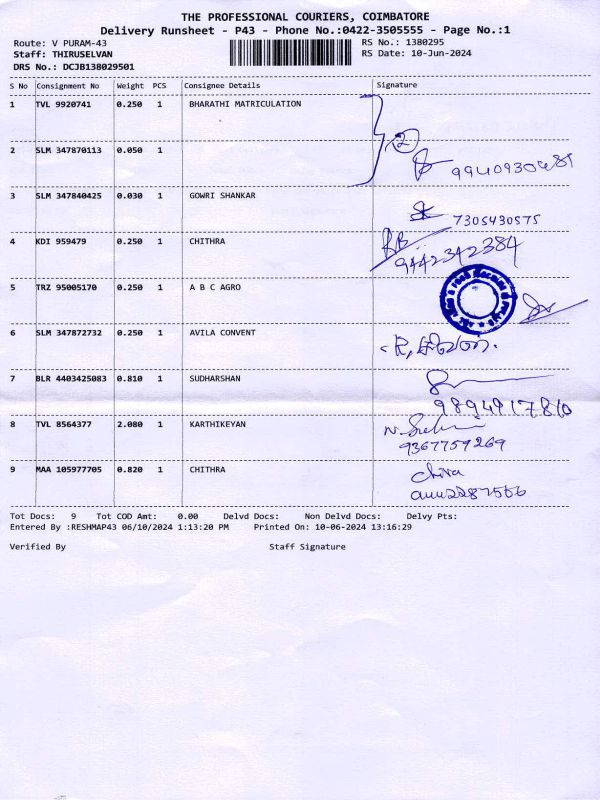 THE PROFESSIONAL COURIERS, COIMBATORE
Delivery Runsheet - P43 - Phone No.:0422-3505555 - Page No.:1
Route: V PURAM-43 RS No.: 1380295
Staff: THIRUSELVAN RS Date: 10-Jun-2024
DRS No.: DCJB138029501
S No Consignment No Weight PCS Consignee Details Signature
1 TVL 9920741 0.250 1 BHARATHI MATRICULATION
2
2 SLM 347870113 0.050 1
3 SLM 347840425 0.030 1 GOWRI SHANKAR
7305430575
4 KDI 959479 0.250 1 CHITHRA
9442342384
5 TRZ 95005170 0.250 1 A B C AGRO
6 SLM 347872732 0.250 1 AVILA CONVENT
7 BLR 4403425083 0.810 1 SUDHARSHAN
9894917810
8 TVL 8564377 2.080 1 KARTHIKEYAN
9367759269
9 MAA 105977705 0.820 1 CHITHRA
Tot Docs: 9 Tot COD Amt: 0.00 Delvd Docs: Non Delvd Docs: Delvy Pts:
Entered By :RESHMAP43 06/10/2024 1:13:20 PM Printed On: 10-06-2024 13:16:29
Verified By Staff Signature